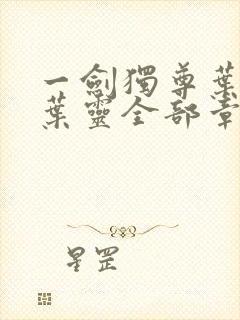 一劍獨尊葉
葉靈全部章
星罡